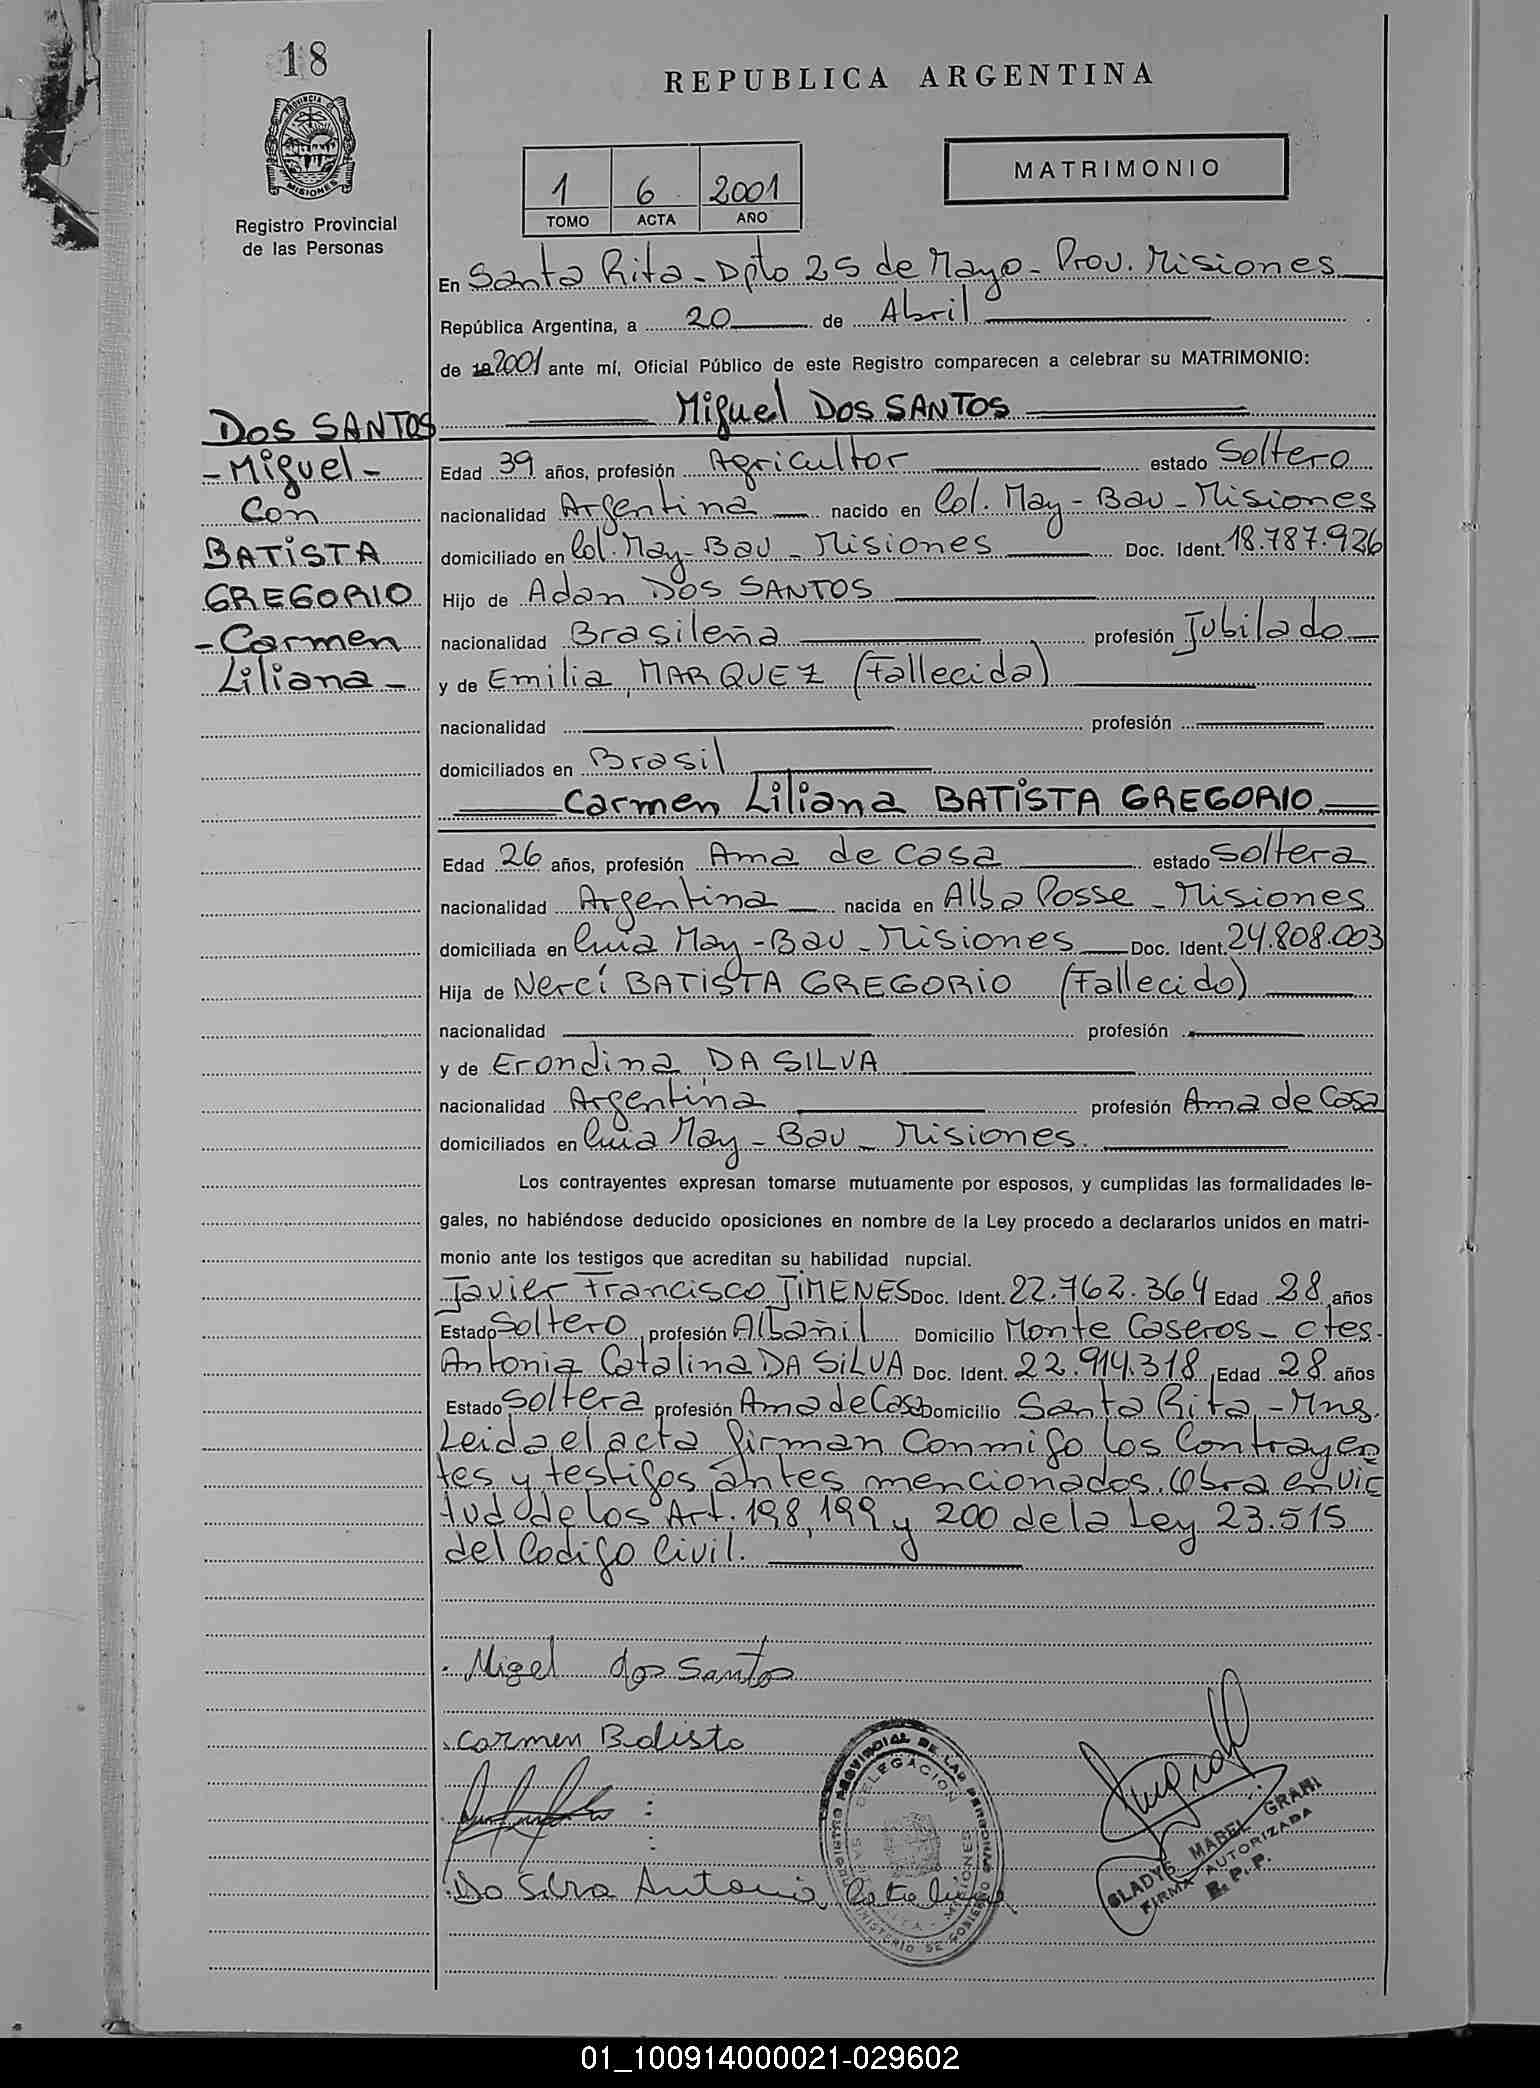 18
REPUBLICA ARGENTINA
PROVINCIA DE
MISIONES
Registro Provincial
de las Personas
MATRIMONIO
1 6 2001
TOMO ACTA AÑO
En Santa Rita - Dpto 25 de Mayo - Prov. Misiones
República Argentina, a 20 de Abril
de 19 2001 ante mí, Oficial Público de este Registro comparecen a celebrar su MATRIMONIO:
DOS SANTOS
- Miguel -
Con
BATISTA
GREGORIO
- Carmen
Liliana -
Miguel DOS SANTOS
Edad 39 años, profesión Agricultor estado Soltero
nacionalidad Argentina nacido en Col. May - Bav - Misiones
domiciliado en Col. May - Bav - Misiones Doc. Ident. 18.787.926
Hijo de Adan DOS SANTOS
nacionalidad Brasileña profesión Jubilado
y de Emilia MARQUEZ (Fallecida)
nacionalidad profesión
domiciliados en Brasil
Carmen Liliana BATISTA GREGORIO
Edad 26 años, profesión Ama de Casa estado Soltera
nacionalidad Argentina nacida en Alba Posse - Misiones
domiciliada en May - Bav - Misiones Doc. Ident. 24.808.003
Hija de Nercí BATISTA GREGORIO (Fallecido)
nacionalidad profesión
y de Erondina DA SILVA
nacionalidad Argentina profesión Ama de Casa
domiciliados en May - Bav - Misiones.
Los contrayentes expresan tomarse mutuamente por esposos, y cumplidas las formalidades le-
gales, no habiéndose deducido oposiciones en nombre de la Ley procedo a declararlos unidos en matri-
monio ante los testigos que acreditan su habilidad nupcial.
Javier Francisco JIMENES Doc. Ident. 22.762.364 Edad 28 años
Estado Soltero profesión Albañil Domicilio Monte Caseros - Ctes.
Antonia Catalina DA SILVA Doc. Ident. 22.914.318 Edad 28 años
Estado Soltera profesión Ama de Casa Domicilio Santa Rita - Mns.
Leida el acta firman Conmigo los Contrayen
tes y testigos antes mencionados. Obra en vir
tud de los Art. 198, 199 y 200 de la Ley 23.515
del Codigo Civil.
Migel dos Santos
Carmen Batista
Da Silva Antonia Catalina
REGISTRO PROVINCIAL DE LAS PERSONAS
DELEGACION
MISIONES
MINISTERIO DE GOBIERNO
GLADYS MABEL GRAHL
FIRMA AUTORIZADA
R. P. P.
01_100914000021-029602